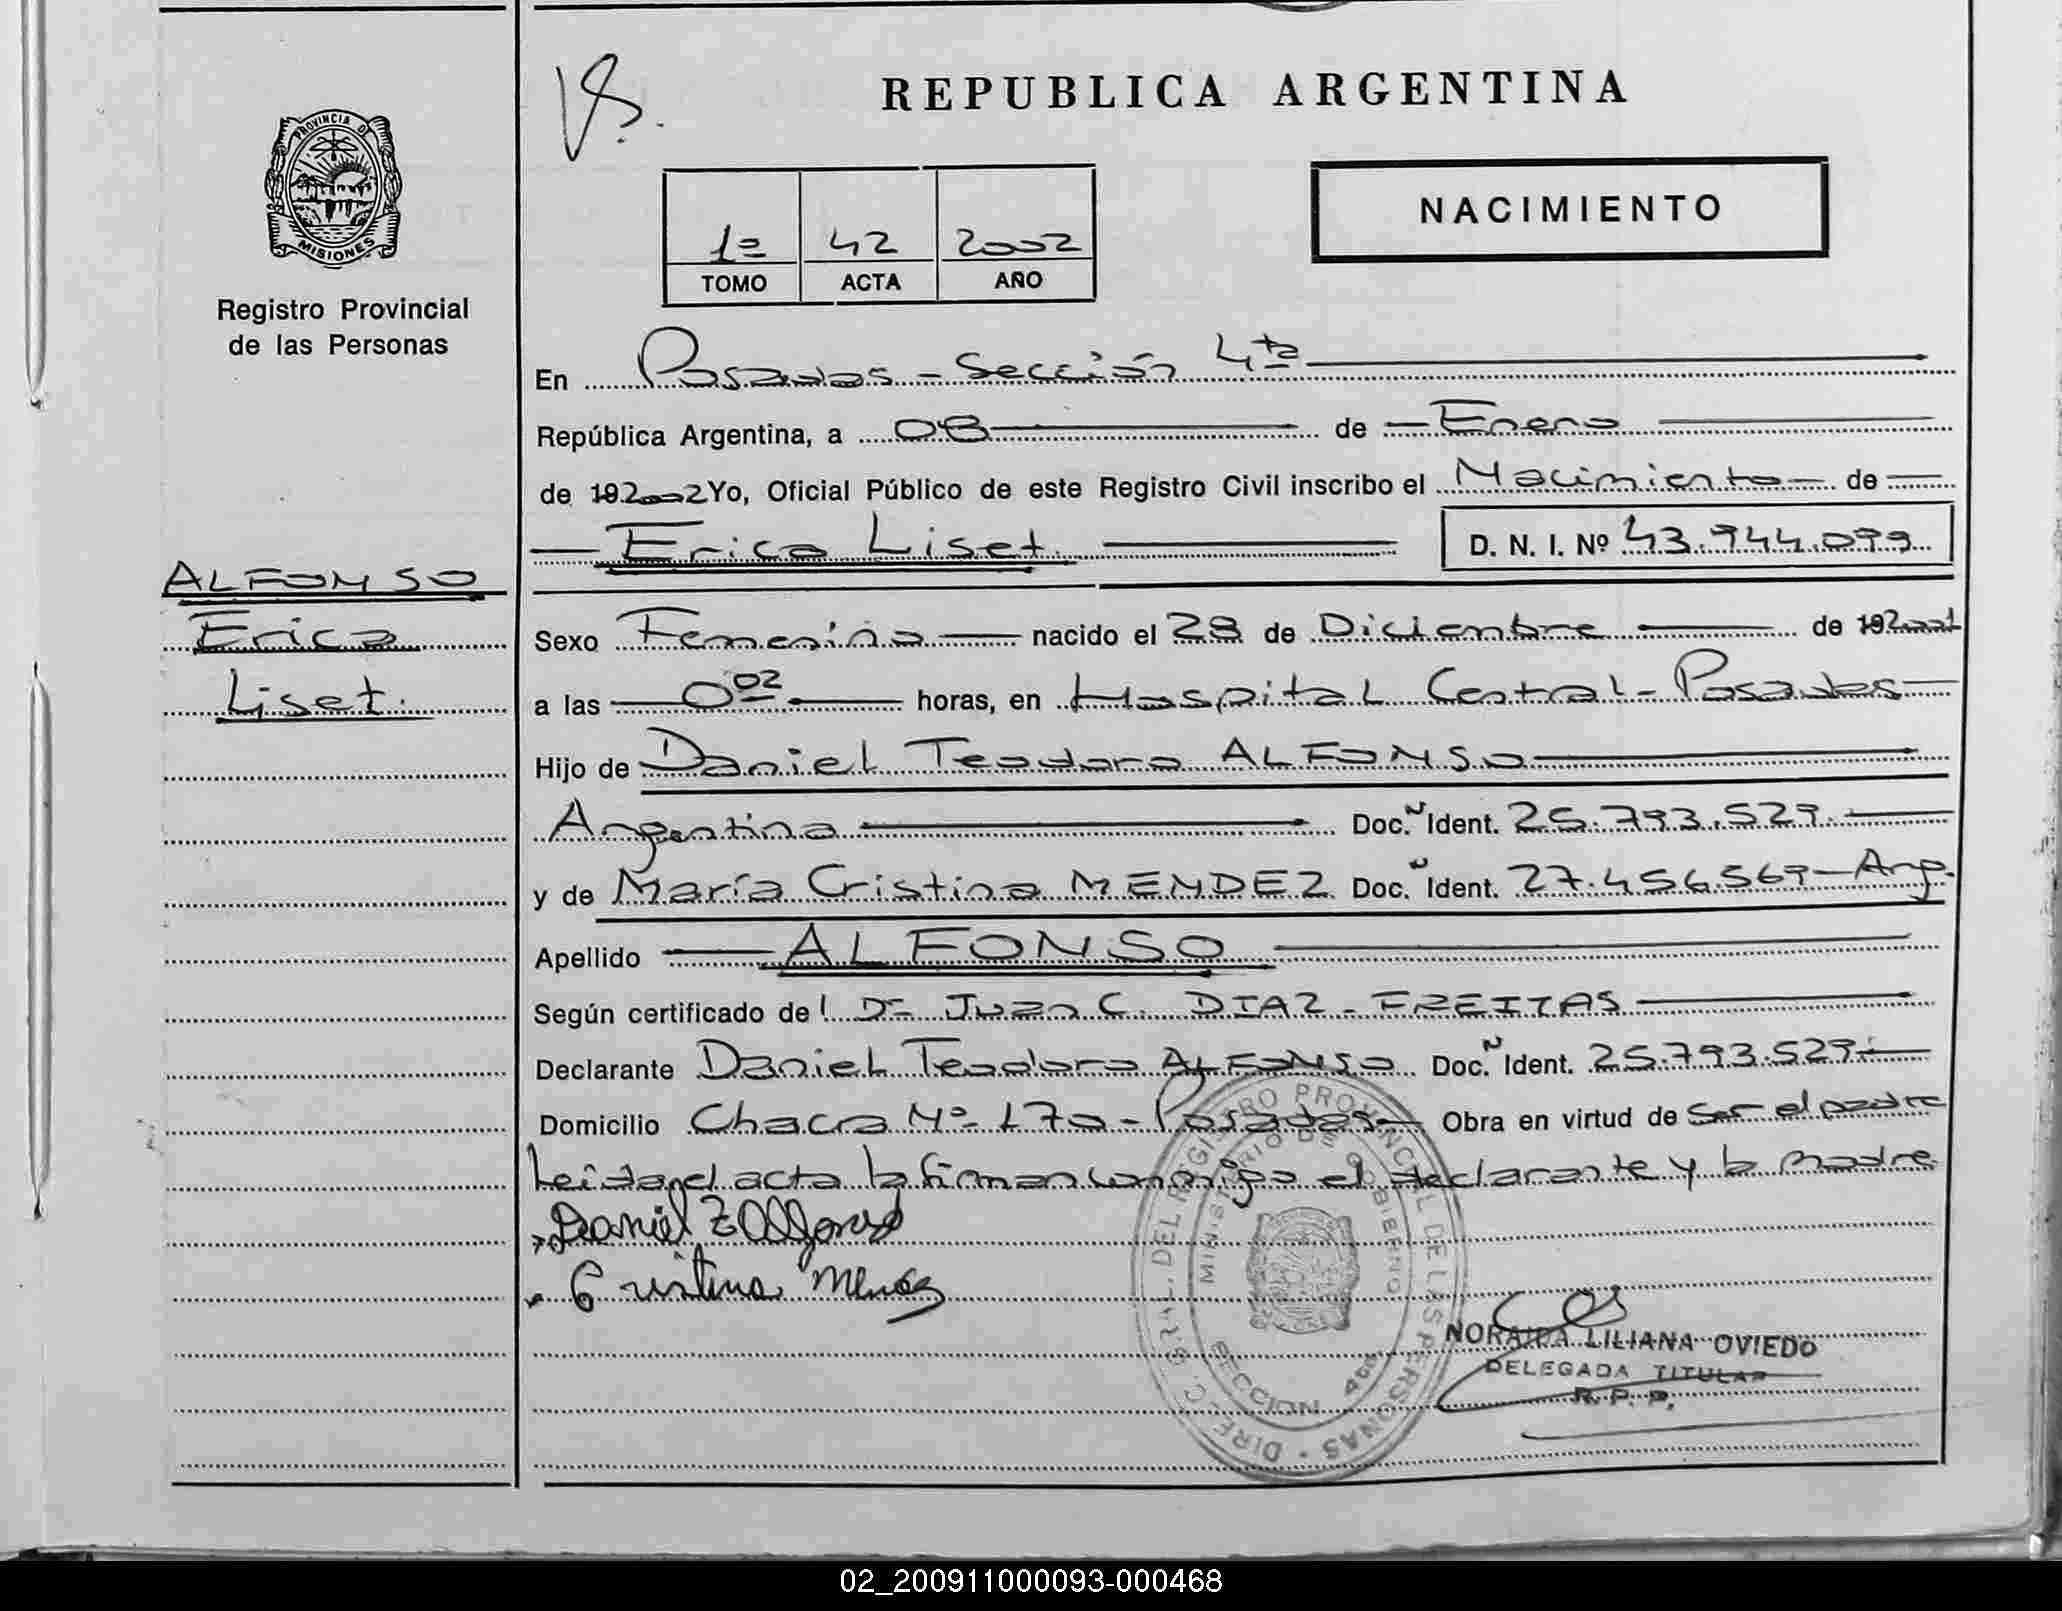 REPUBLICA ARGENTINA
PROVINCIA D
MISIONES
Registro Provincial
de las Personas
NACIMIENTO
1º 42 2002
TOMO ACTA AÑO
En Posadas - Sección 4ta
República Argentina, a 08 de Enero
de 192002 Yo, Oficial Público de este Registro Civil inscribo el Nacimiento de
Erica Liset. D. N. I. Nº 43.944.099
ALFONSO
Erica
Liset.
Sexo Femenina nacido el 28 de Diciembre de 192001
a las 0 02 horas, en Hospital Central - Posadas
Hijo de Daniel Teodoro ALFONSO
Argentina Doc. N Ident. 25.793.529.
y de María Cristina MENDEZ Doc. N Ident. 27.456.569 - Arg.
Apellido ALFONSO
Según certificado de l Dr Juan C. DIAZ - FREITAS
Declarante Daniel Teodoro ALFONSO Doc. N Ident. 25.793.529.
Domicilio Chacra Nº 170 - Posadas Obra en virtud de ser el padre
Leída el acta la firman conmigo el declarante y la madre.
Daniel T Alfonso
Cristina Mendez
DIRECC. GRAL. DEL REGISTRO PROVINCIAL DE LAS PERSONAS
MINISTERIO DE GOBIERNO
SECCION 4ta
NORAIDA LILIANA OVIEDO
DELEGADA TITULAR
R. P. P.
02_200911000093-000468